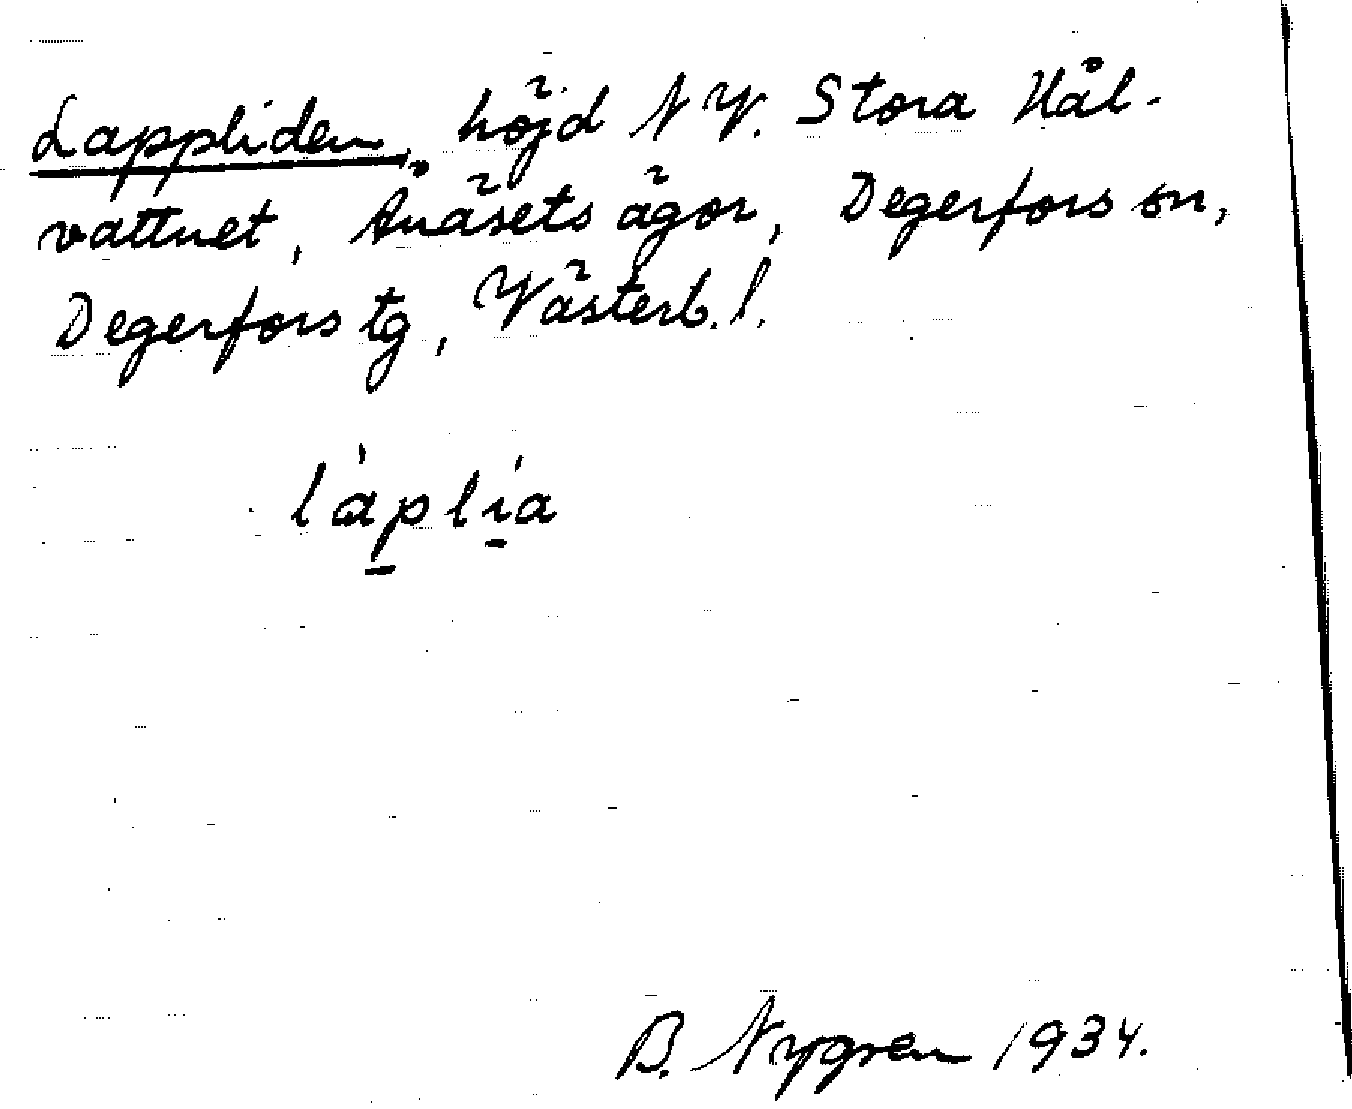 Lappliden, höjd NV. Stora Hål-
vattnet, Ånäsets ägor, Degerfors sn,
Degerfors tg, Västerb. l.
láplía
B. Nygren 1934.